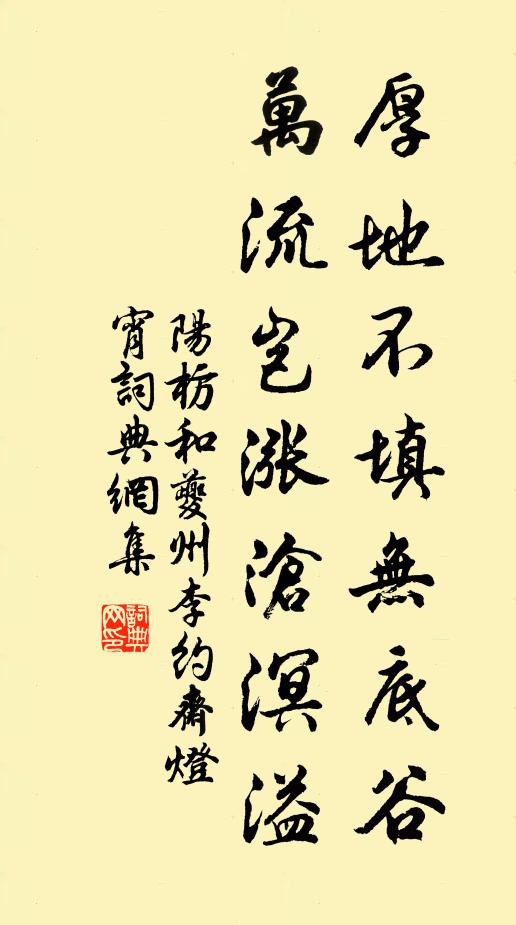 厚地不填無底谷
萬流豈漲滄溟溢
陽枋和夔州李約齋燈
宵詞典網集
詞典网印